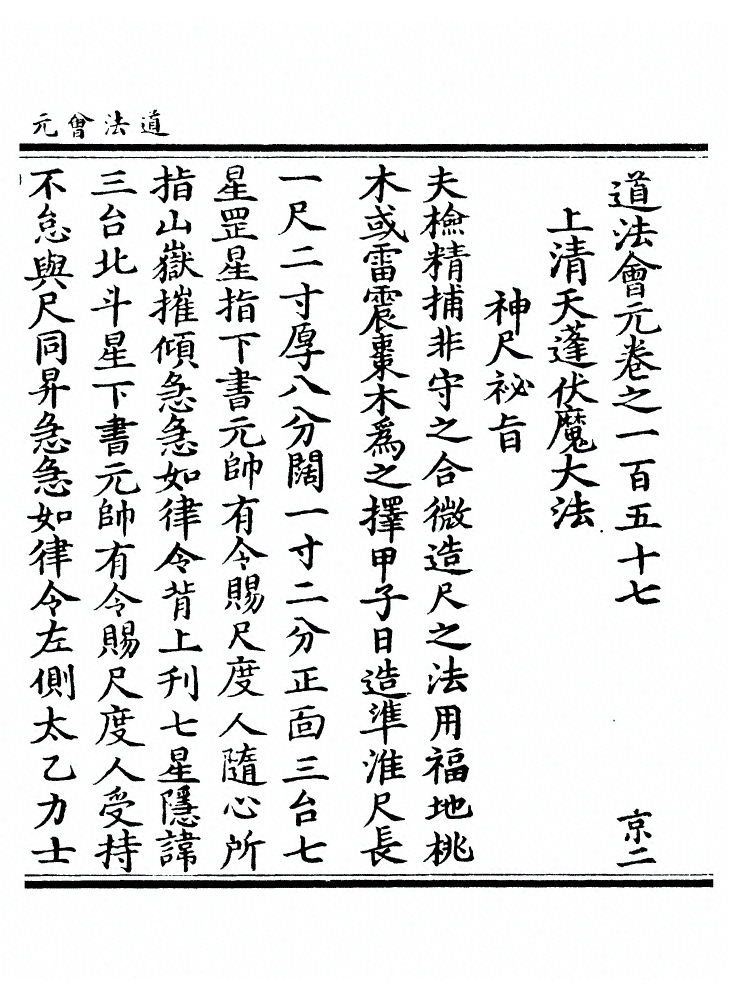 道法會元
道法會元卷之一百五十七 京二
上清天蓬伏魔大法
神尺祕旨
夫檢精捕非守之合微造尺之法用福地桃
木或雷震棗木爲之擇甲子日造準淮尺長
一尺二寸厚八分闊一寸二分正面三台七
星罡星指下書元帥有令賜尺度人隨心所
指山嶽摧傾急急如律令背上刋七星隱諱
三台北斗星下書元帥有令賜尺度人受持
不怠與尺同昇急急如律令左側太乙力士